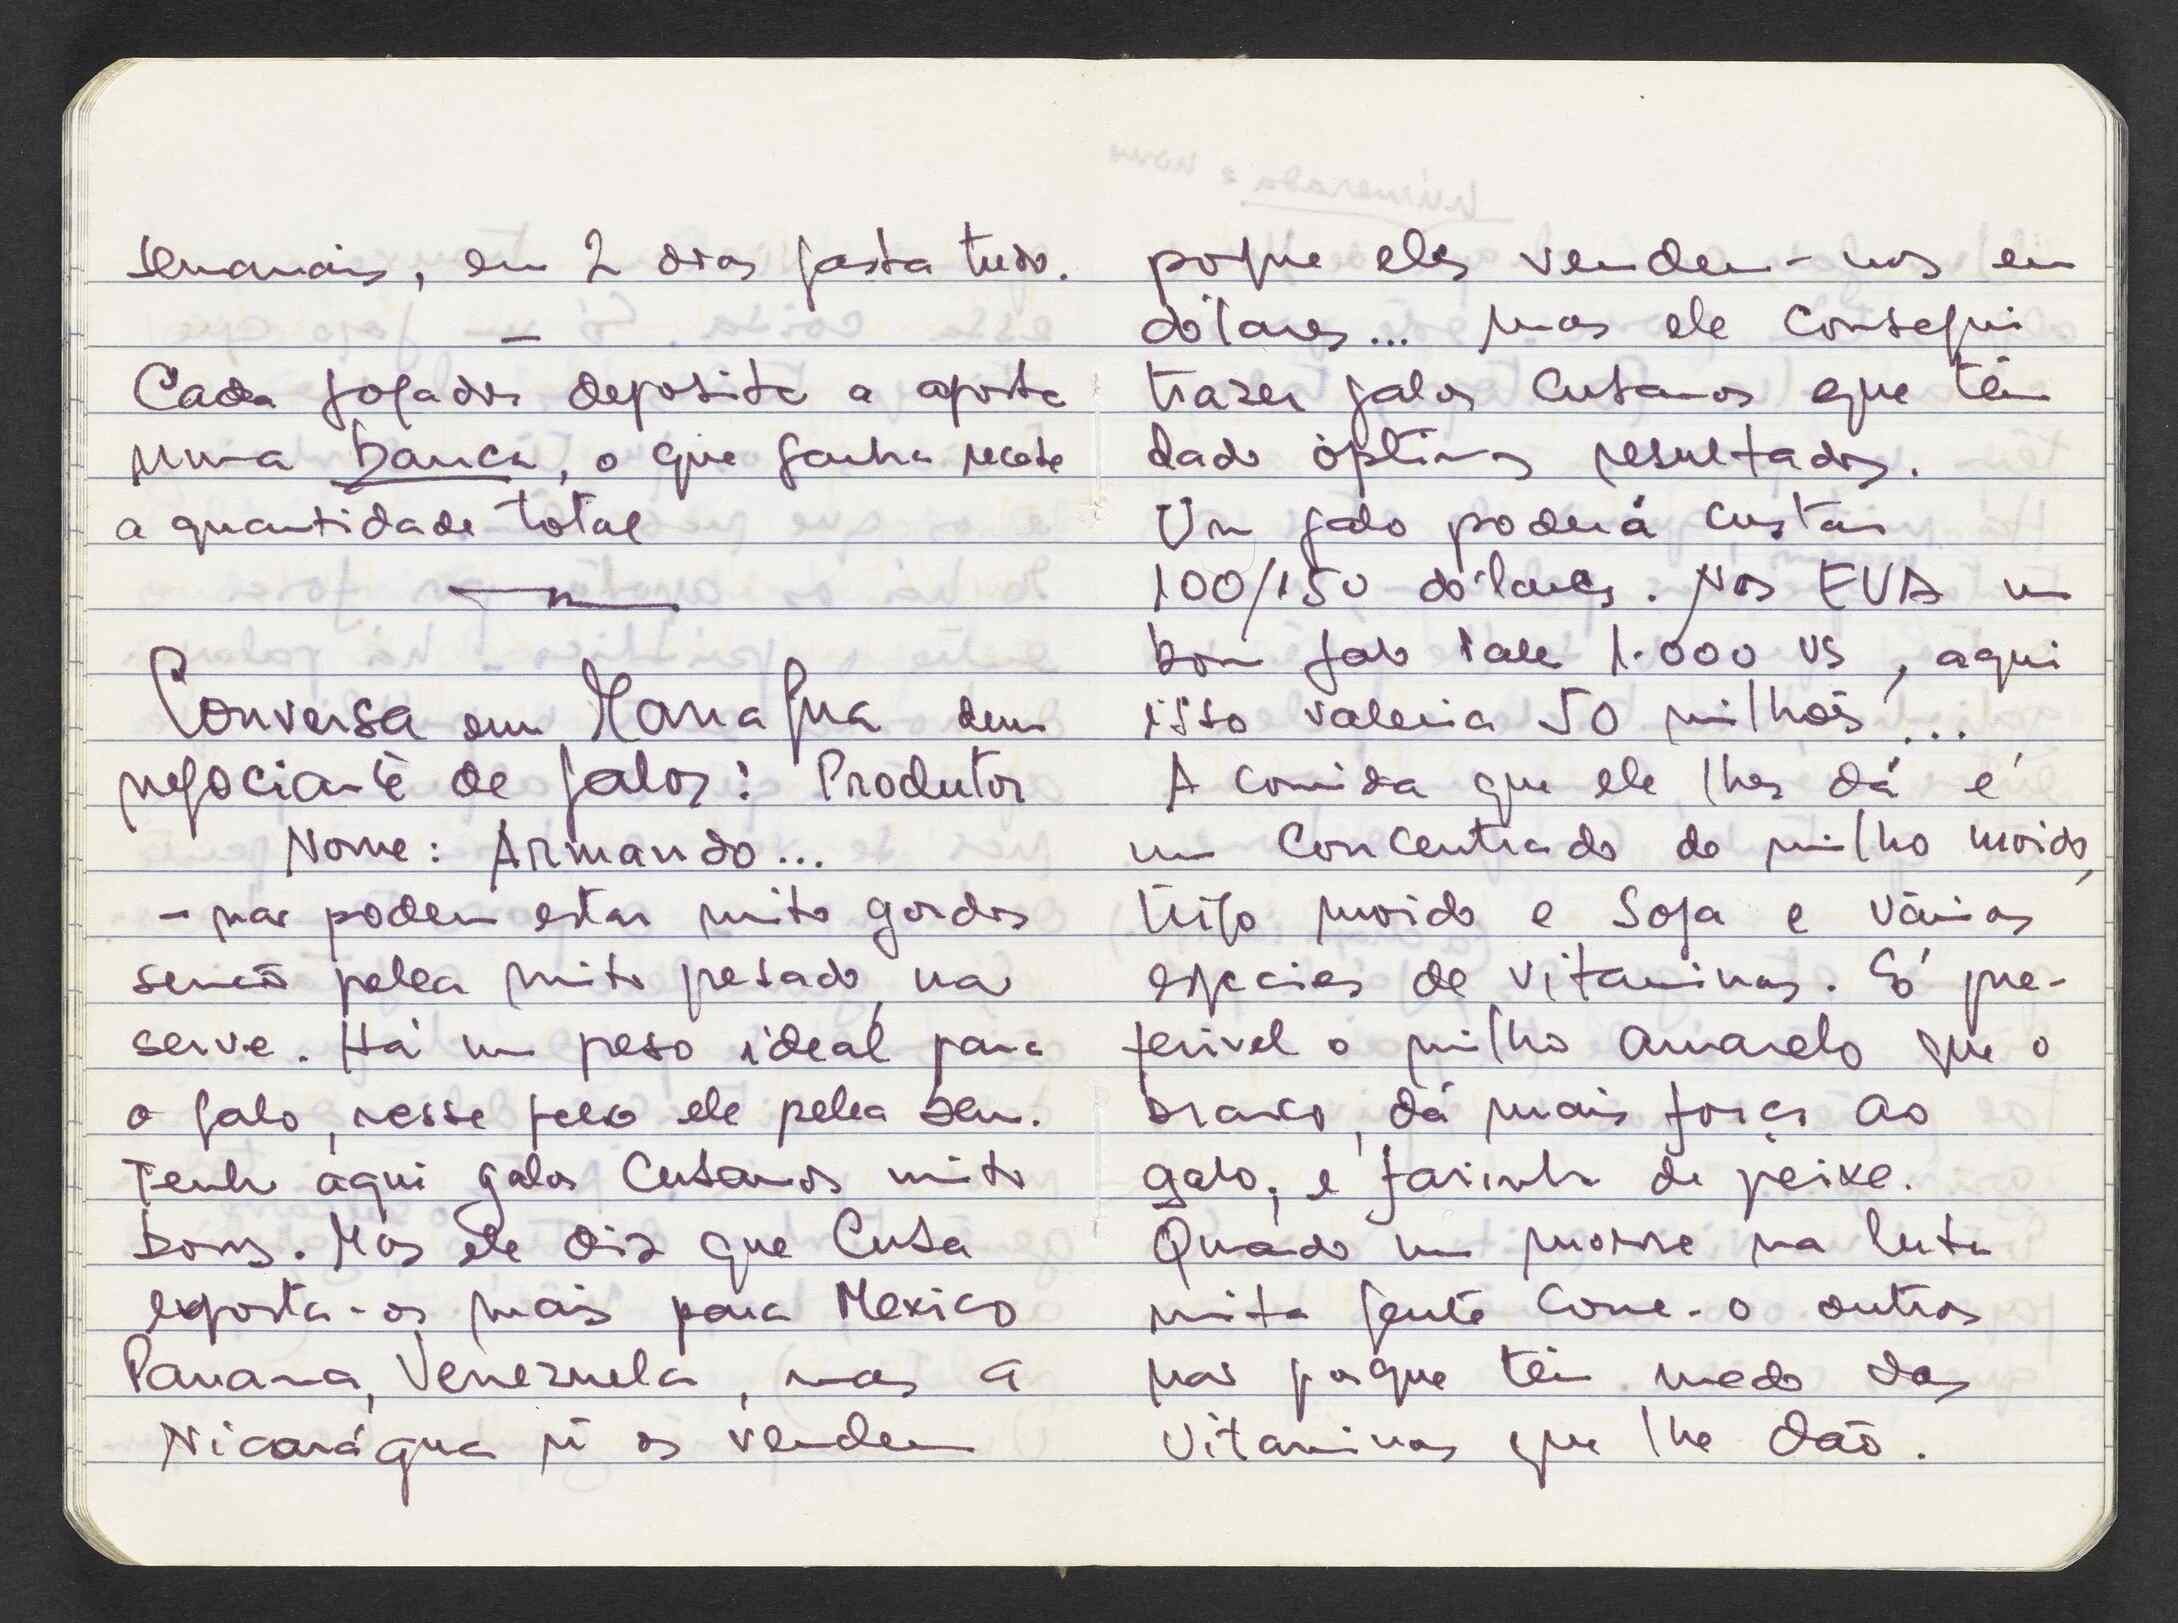 semanais, em 2 dias gasta tudo.
—
Cada jogador deposita a aposta
numa banca, o que ganha recebe
a quantidade total
Conversa em Managua dum
negociante de galos: Produtor
Nome: Armando...
- não podem estar muito gordos
senão pelea muito pesado, não
serve. Há um peso ideal para
o galo, nesse peso ele pelea bem.
Tenho aqui galos Cubanos muito
bons. Mas ele diz que Cuba
exporta-os mais para Mexico
Panama, Venezuela, mas a
Nicarágua ñ os vendem
porque eles vendem-nos em
dólares... mas ele consegui
trazer galos Cubanos que têm
dado óptimos resultados.
Um galo poderá custar
100/150 dólares. Nos EUA um
bom galo vale 1.000 US, aqui
isso valeria 50 milhões!...
A comida que ele lhes dá é
um concentrado de milho moido,
trigo moido e Soja e várias
especies de vitaminas. É pre-
ferivel o milho amarelo que o
branco, dá mais força ao
galo, e farinha de peixe.
Quando um morre na luta
muita gente come-o outros
não porque têm medo das
vitaminas que lhe dão.